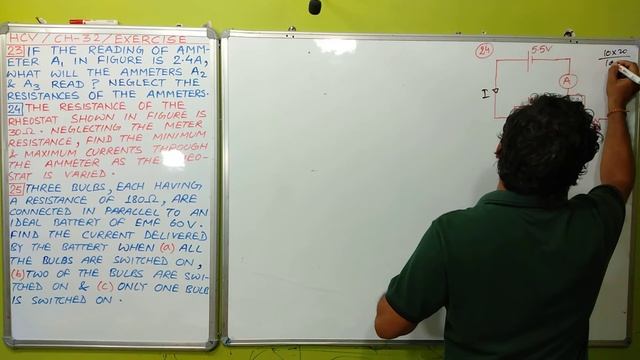 HCV/CH-32/EXERCISE
23 IF THE READING OF AMM-
ETER A1 IN FIGURE IS 2.4A,
WHAT WILL THE AMMETERS A2
& A3 READ? NEGLECT THE
RESISTANCES OF THE AMMETERS.
24 THE RESISTANCE OF THE
RHEOSTAT SHOWN IN FIGURE IS
30Ω. NEGLECTING THE METER
RESISTANCE, FIND THE MINIMUM
& MAXIMUM CURRENTS THROUGH
THE AMMETER AS THE RHEO-
STAT IS VARIED.
25 THREE BULBS, EACH HAVING
A RESISTANCE OF 180Ω, ARE
CONNECTED IN PARALLEL TO AN
IDEAL BATTERY OF EMF 60V.
FIND THE CURRENT DELIVERED
BY THE BATTERY WHEN (a) ALL
THE BULBS ARE SWITCHED ON,
(b) TWO OF THE BULBS ARE SWI-
TCHED ON & (c) ONLY ONE BULB
IS SWITCHED ON.
24
5.5V
A
I
10×20